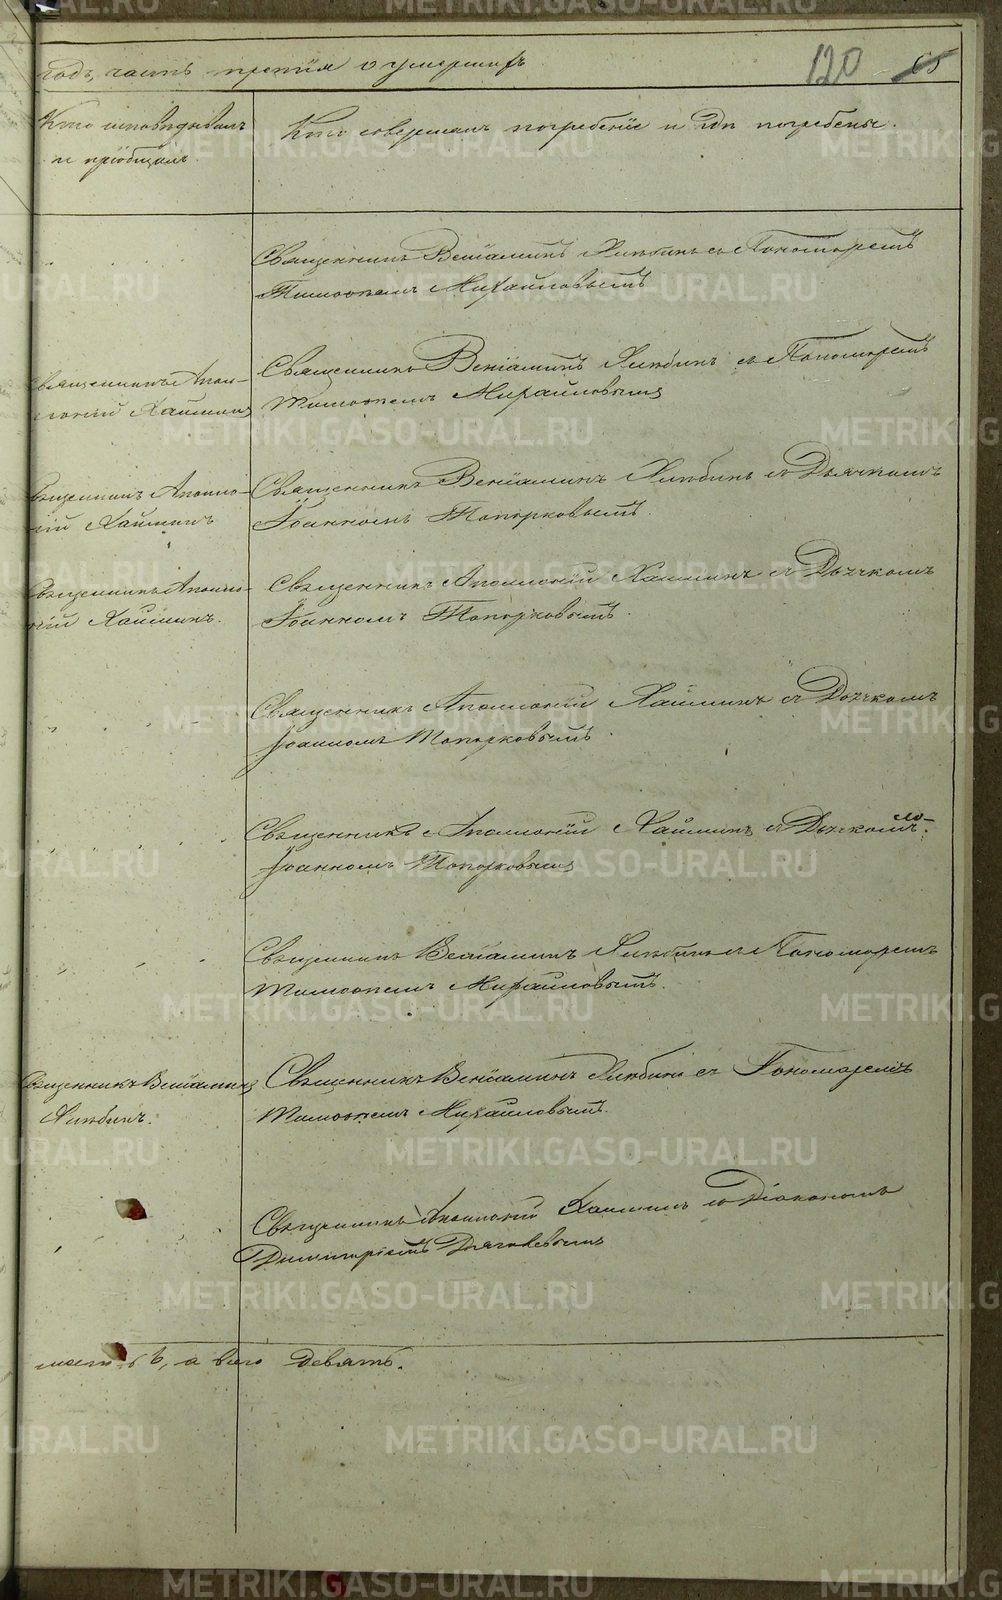 годъ, часть третiя о умершихъ
120 65
Кто исповѣдывалъ
и прiобщалъ.
Кто совершалъ погребенiе и гдѣ погребены.
Священникъ Венiаминъ съ Пономаремъ
Тимоѳеемъ Михайловымъ
Священникъ Венiаминъ съ Пономаремъ
Тимоѳеемъ Михайловымъ
Священникъ Аполло-
нiй Хайминъ
Священникъ Венiаминъ съ Дьячкомъ
Iоанномъ Топорковымъ.
Священникъ Аполло-
нiй Хайминъ
Священникъ Аполлонiй Хайминъ съ Дьячкомъ
Iоанномъ Топорковымъ.
Священникъ Аполло-
нiй Хайминъ.
Священникъ Аполлонiй Хайминъ съ Дьячкомъ
Iоанномъ Топорковымъ.
Священникъ Аполлонiй Хайминъ съ Дьячкомъ
Iоанномъ Топорковымъ
Священникъ Венiаминъ съ Пономаремъ
Тимоѳеемъ Михайловымъ.
Священникъ Венiаминъ
Священникъ Венiаминъ съ Пономаремъ
Тимоѳеемъ Михайловымъ.
Священникъ Аполлонiй Хайминъ со Дiакономъ
Димитрiемъ
а всего девять.
METRIKI.GASO-URAL.RU